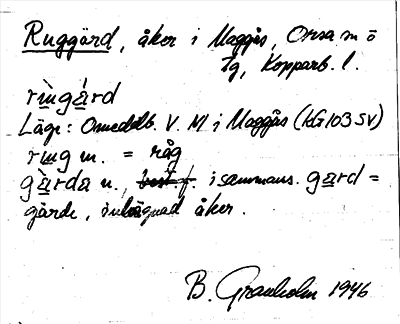 Ruggärd, åker i Maggås, Orsa sn ö
tg, Kopparb. l.
rı̀ngá̱rd
Läge: Omedelb. V. M i Maggås (KG103SV)
rug m. = råg
gàrda n., best f. i sammans. gard =
gärde, inhägnad åker.
B. Granholm 1946